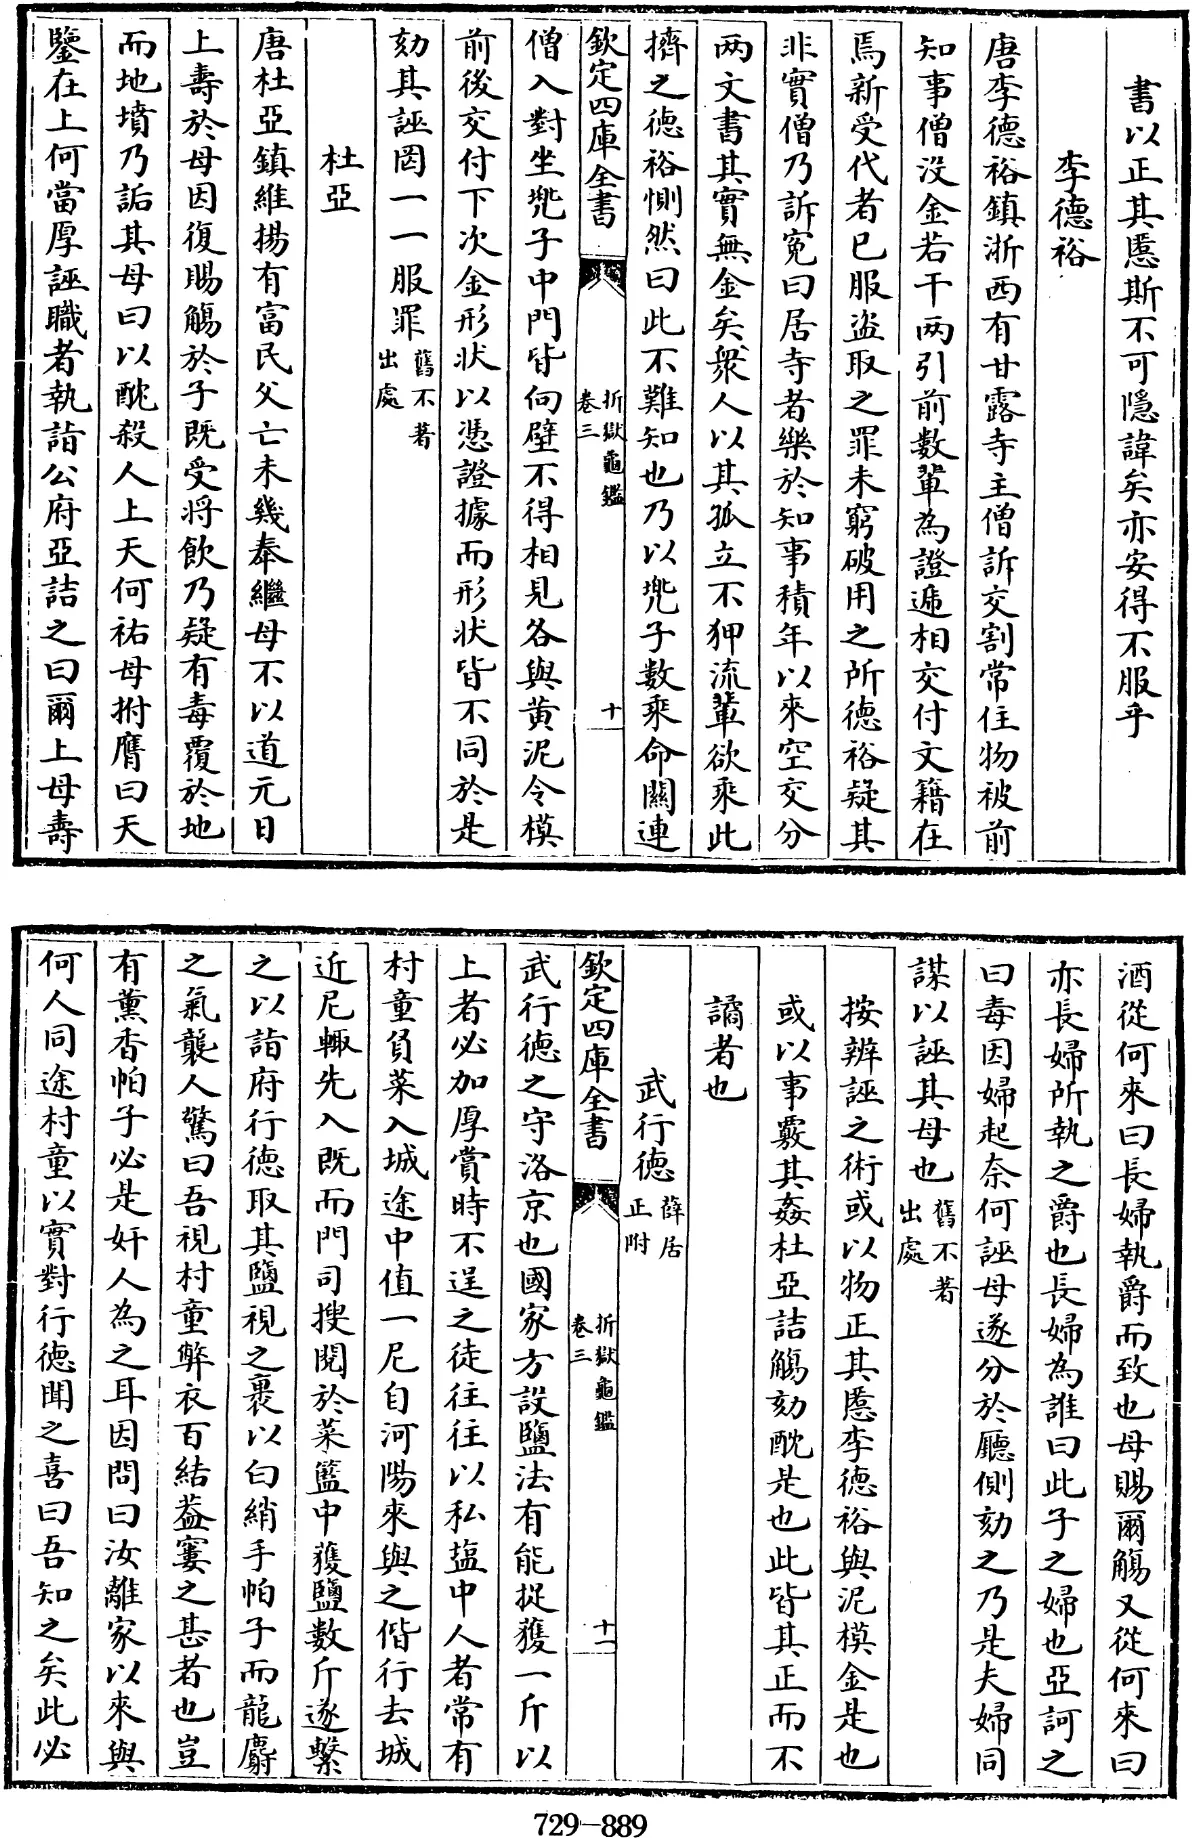 書以正其慝斯不可隱諱矣亦安得不服乎
李德裕
唐李德裕鎮浙西有甘露寺主僧訴交割常住物被前
知事僧沒金若干兩引前數輩為證遞相交付文籍在
焉新受代者已服盜取之罪未窮破用之所德裕疑其
非實僧乃訴冤曰居寺者樂於知事積年以來空交分
两文書其實無金矣衆人以其孤立不狎流輩欲乘此
擠之德裕惻然曰此不難知也乃以兠子數乘命關連
欽定四庫全書
折獄龜鑑
卷三
十
僧入對坐兠子中門皆向壁不得相見各與黄泥令模
前後交付下次金形狀以憑證據而形狀皆不同於是
劾其誣罔一一服罪舊不著出處
杜亞
唐杜亞鎮維揚有富民父亡未幾奉繼母不以道元日
上壽於母因復賜觴於子既受将飲乃疑有毒覆於地
而地墳乃詬其母曰以酖殺人上天何祐母拊膺曰天
鑒在上何當厚誣職者執詣公府亞詰之曰爾上母壽
酒從何來曰長婦執爵而致也母賜爾觴又從何來曰
亦長婦所執之爵也長婦為誰曰此子之婦也亞訶之
曰毒因婦起奈何誣母遂分於廳側劾之乃是夫婦同
謀以誣其母也舊不著出處
按辨誣之術或以物正其慝李德裕與泥模金是也
或以事覈其姦杜亞詰觴劾酖是也此皆其正而不
譎者也
武行德薛居正附
欽定四庫全書
折獄龜鑑
卷三
十一
武行德之守洛京也國家方設鹽法有能捉獲一斤以
上者必加厚賞時不逞之徒往往以私塩中人者常有
村童負菜入城途中值一尼自河陽來與之偕行去城
近尼輙先入既而門司搜閱於菜籃中獲鹽數斤遂繫
之以詣府行德取其鹽視之裹以白綃手帕子而龍麝
之氣襲人驚曰吾視村童弊衣百結葢窶之甚者也豈
有薰香帕子必是奸人為之耳因問曰汝離家以來與
何人同途村童以實對行德聞之喜曰吾知之矣此必
729-889